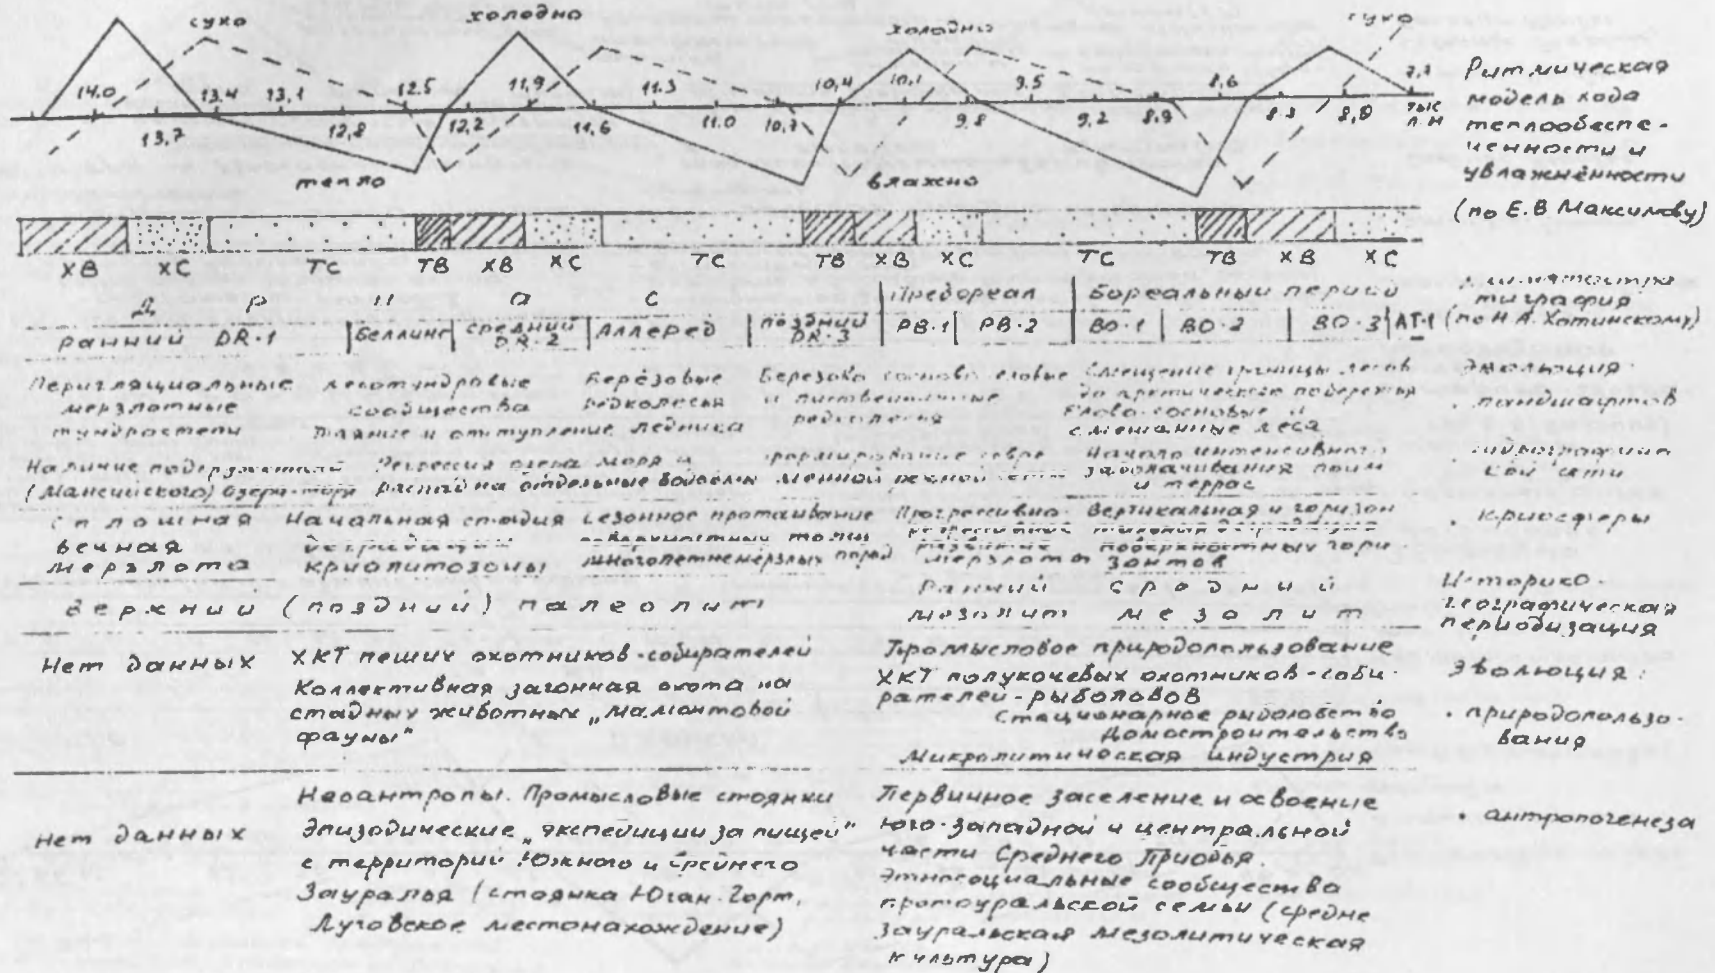 сухо холодно холодно сухо
14.0 13.4 13,1 12.5 11,9 11.3 10,4 10,1 9.5 8,6
13,7 12,8 12,2 11,6 11,0 9.8 9,2 8,9 8.3 8,0 тыс л.н
тепло влажно
Ритмическая
модель хода
теплообеспе-
ченности и
увлажнённости
(по Е.В Максимову)
ХВ ХС ТС ТВ ХВ ХС ТС ТВ ХВ ХС ТС ТВ ХВ ХС
Д р и а с Предореал Бореальный период
ранний DR-1 беллинг средний DR-2 Аллеред поздний DR-3 РВ-1 РВ-2 ВО-1 ВО-2 ВО-3 АТ-1
тиграфия
(по Н.А. Хотинскому)
Перигляциальные
мерзлотные
тундростепи
лесотундровые
сообщества
Таяние и отступление ледника
берёзовые
редколесья
Березово сосново еловые
и лиственничные
редколесья
Смещение границы лесов
до арктического побережья
Елово-сосновые и
смешанные леса
Эволюция:
. ландшафтов
Наличие
(Мансийского) озера-моря
Регрессия озера моря и
распад на отдельные водоемы
формирование совре
менной речной сети
Начало интенсивного
заболачивания пойм
и террас
. гидрографиче
ской сети
Сплошная
вечная
мерзлота
Начальная стадия
деградации
криолитозоны
Сезонное протаивание
поверхностных толщ
многолетнемерзлых пород
Прогрессивно-
регрессивное
развитие
мерзлоты
Вертикальная и горизон
поверхностных гори-
зонтов
. криосферы
верхний (поздний) палеолит
Ранний
мезолит
средний
мезолит
Историко-
географическая
периодизация
Нет данных
ХКТ пеших охотников-собирателей
Коллективная загонная охота на
стадных животных „мамонтовой
фауны"
Промысловое природопользование
ХКТ полукочевых охотников-соби-
рателей-рыболовов
Стационарное рыболовство
Домостроительство
Микролитическая индустрия
Эволюция:
. природопользо-
вания
Нет данных
Неоантропы. Промысловые стоянки
Эпизодические „экспедиции за пищей"
с территорий Южного и Среднего
Зауралья (стоянка Юган-Горт,
Луговское местонахождение)
Первичное заселение и освоение
юго-западной и центральной
части Среднего Приобья.
Этносоциальные сообщества
протоуральской семьи (средне
зауральская мезолитическая
культура)
. антропогенеза